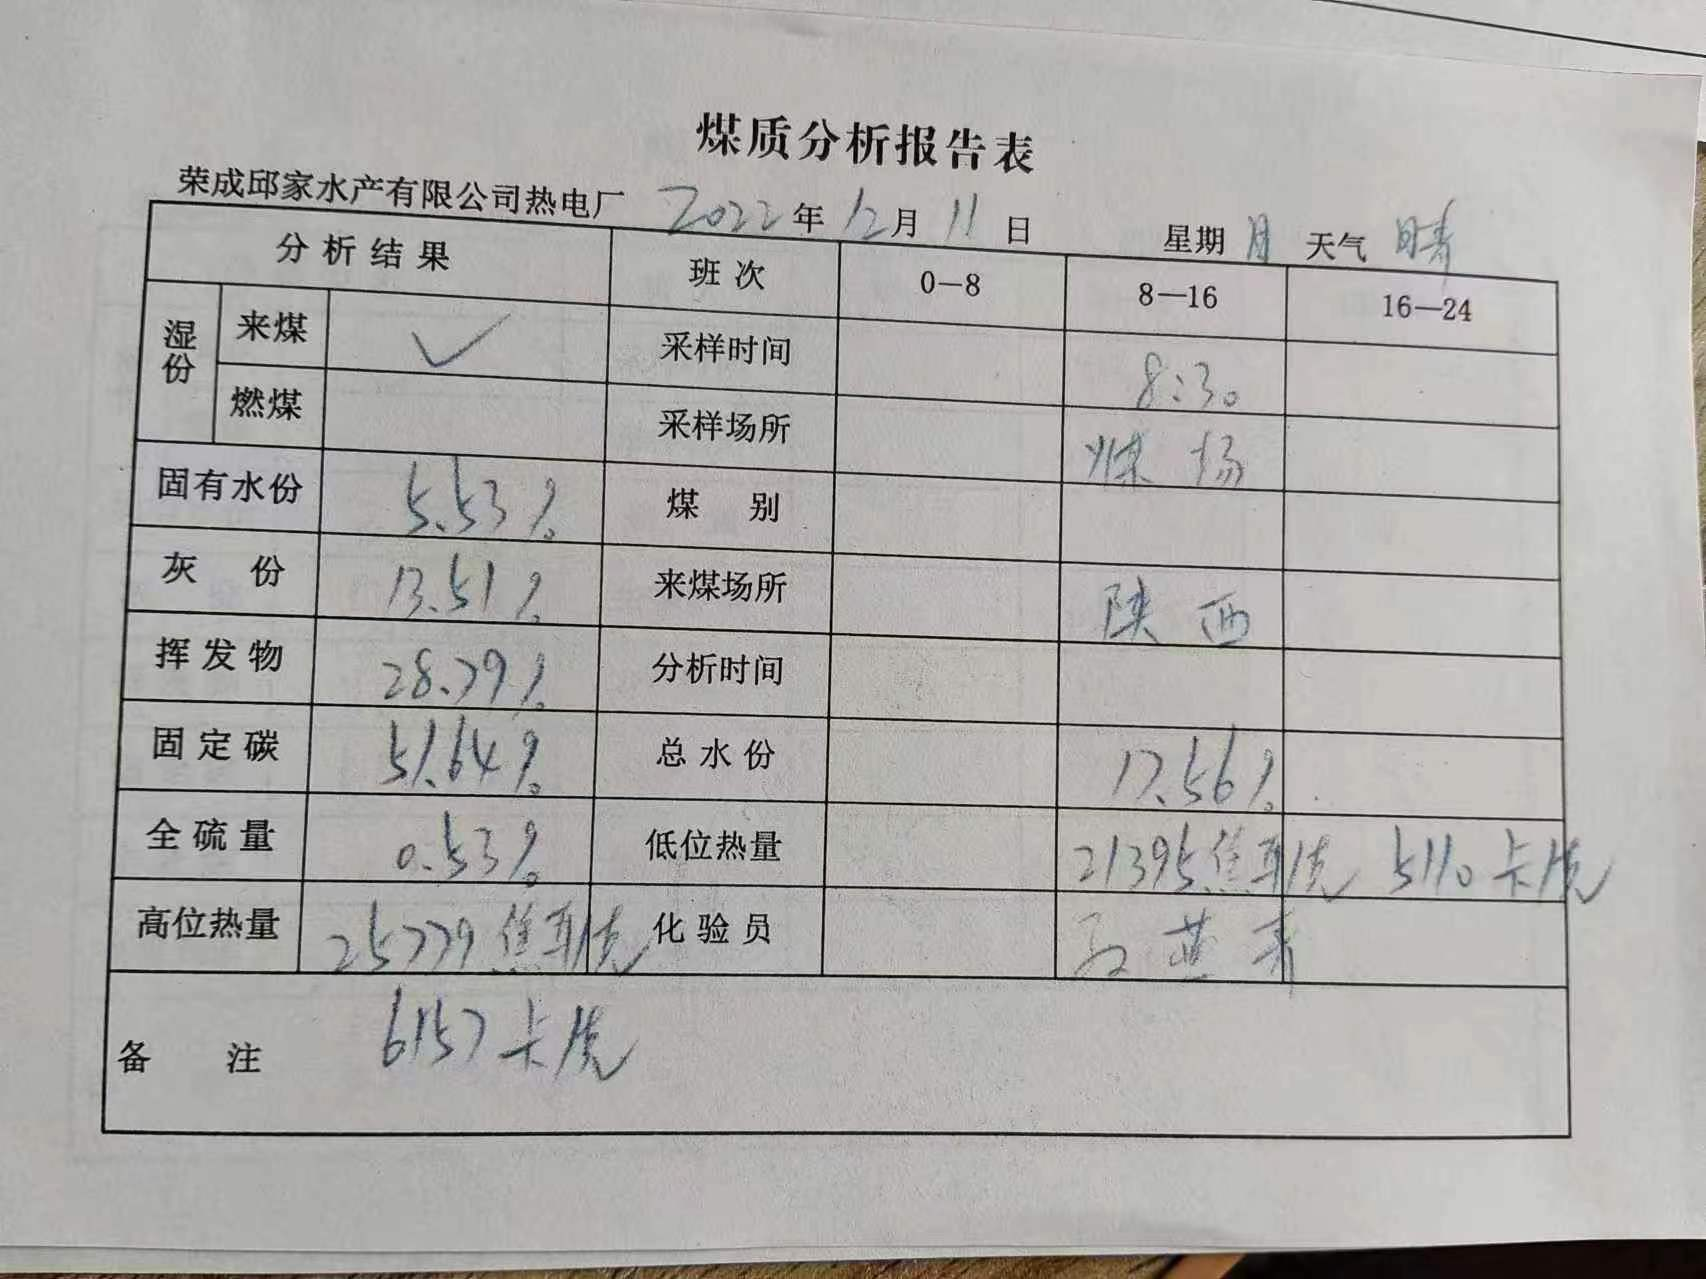 煤质分析报告表
荣成邱家水产有限公司热电厂 2022年12月11日 星期日 天气 晴
分析结果 班次 0—8 8—16 16—24
湿份 来煤 ✓ 采样时间 8:30
燃煤 采样场所 煤场
固有水份 5.53% 煤别
灰份 13.51% 来煤场所 陕西
挥发物 28.79% 分析时间
固定碳 51.64% 总水份 17.56%
全硫量 0.53% 低位热量 21395焦耳/克 5110卡/克
高位热量 25779焦耳/克 化验员
备注 6157卡/克